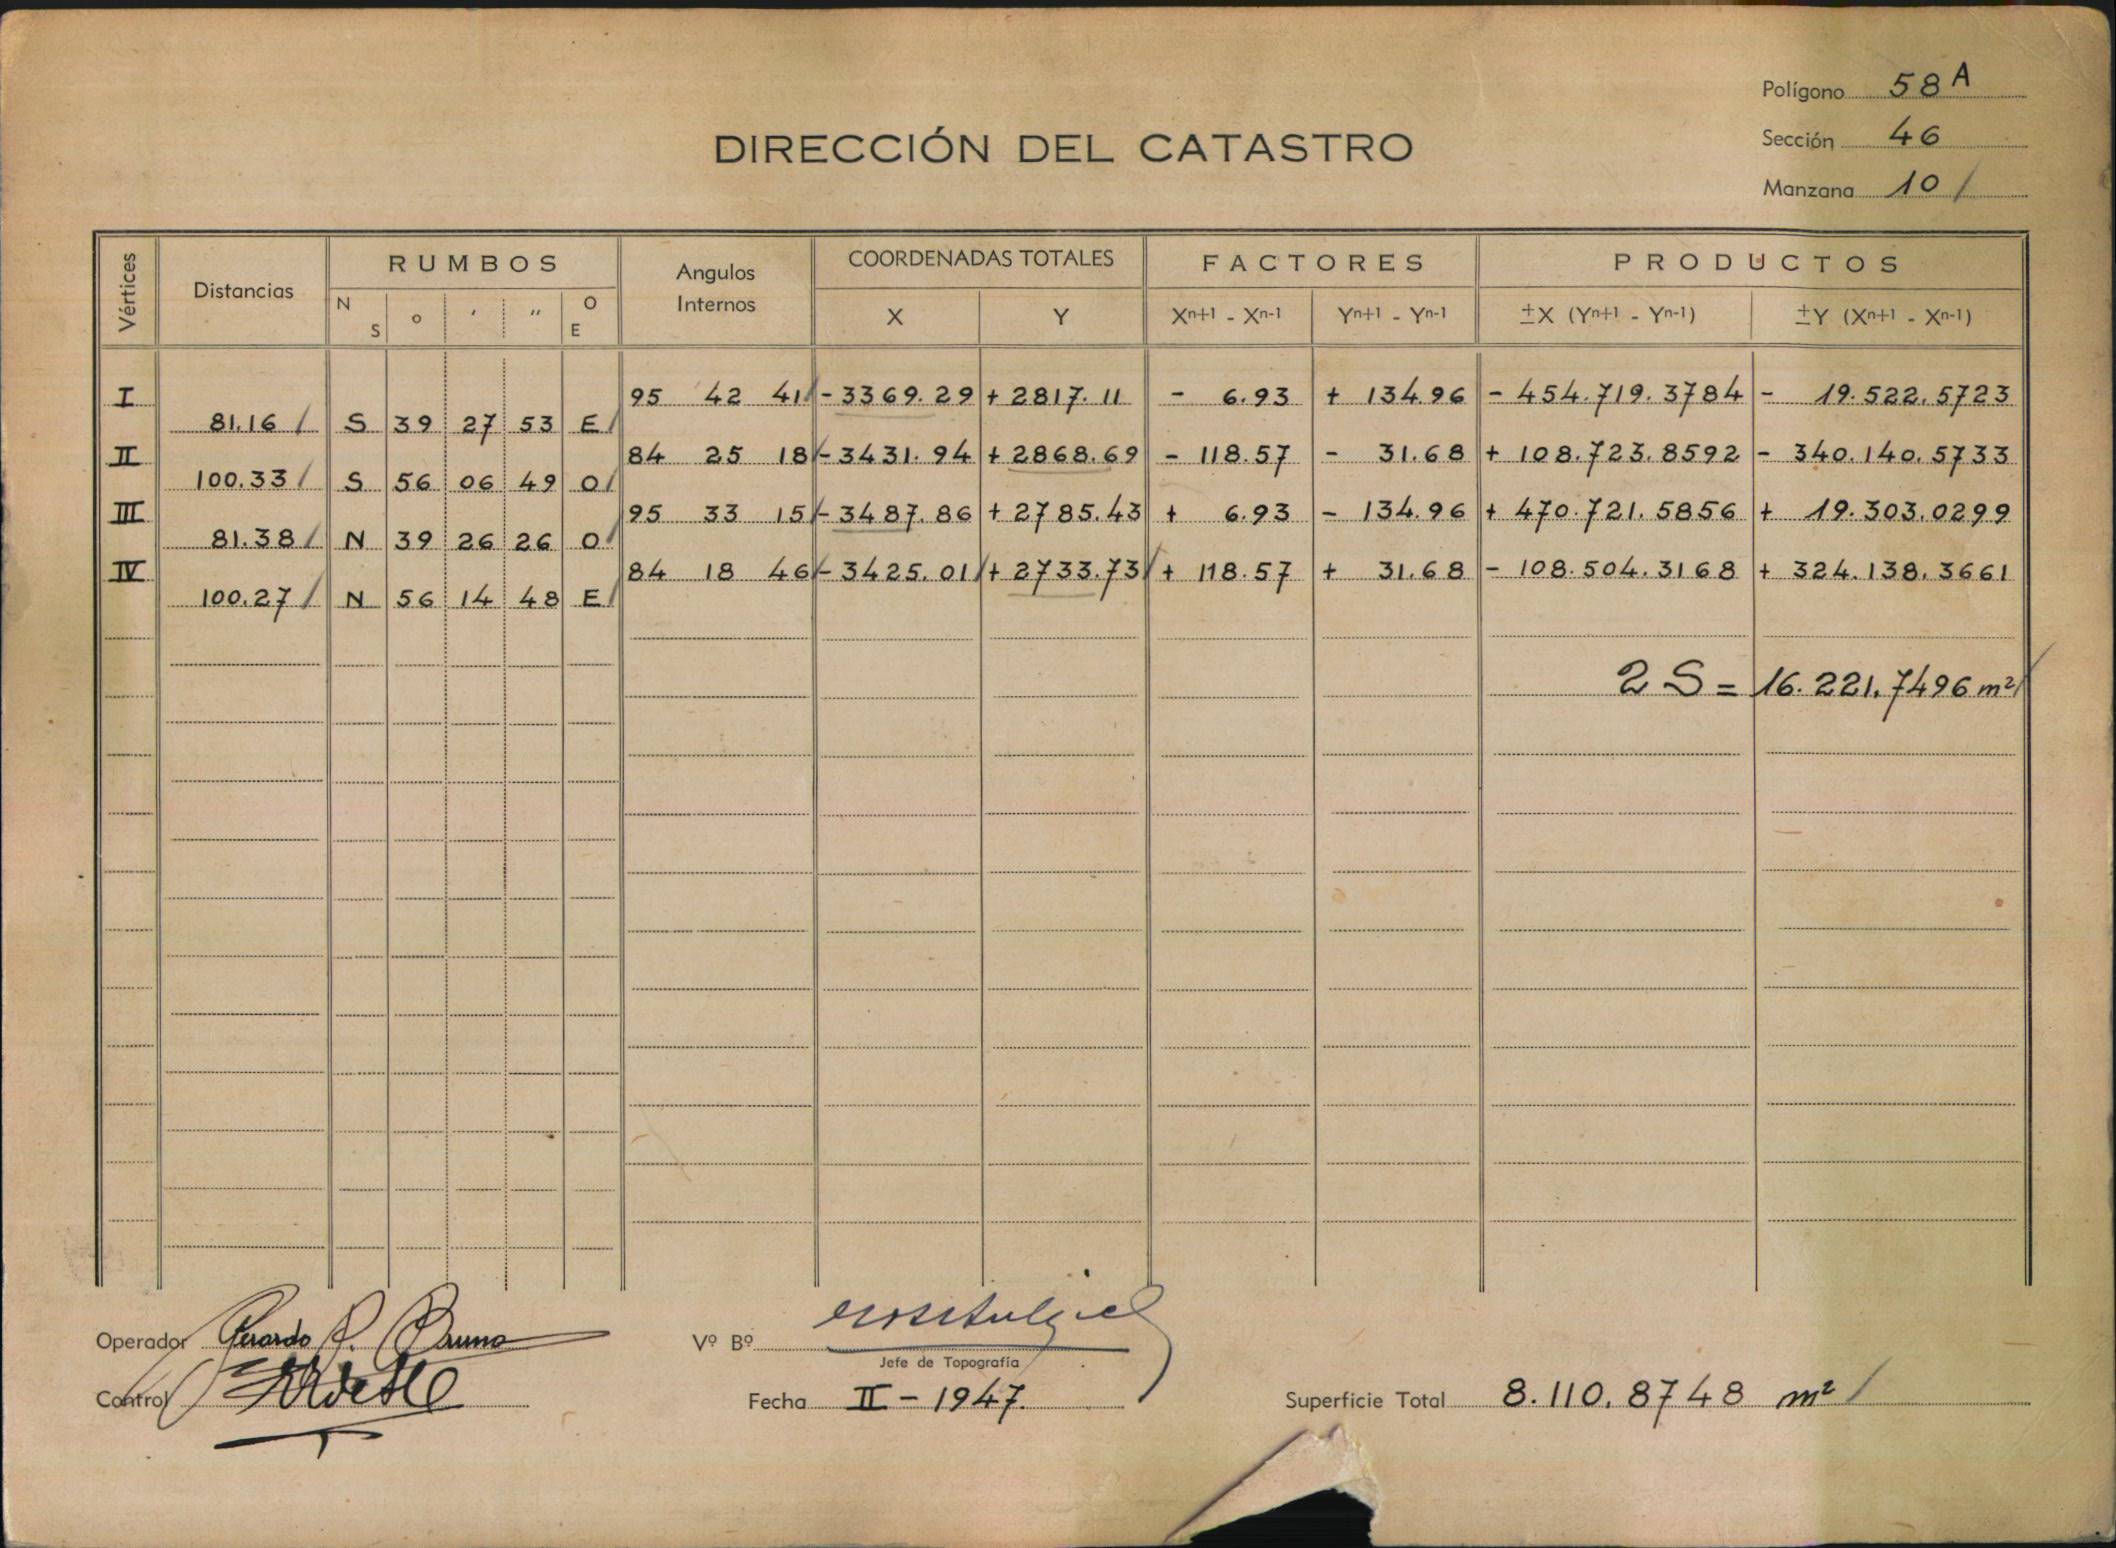 Polígono 58 A
DIRECCIÓN DEL CATASTRO
Sección 46
Manzana 10 /
Vértices Distancias RUMBOS Angulos Internos COORDENADAS TOTALES FACTORES PRODUCTOS
N S o ' " O E X Y Xn+1 - Xn-1 Yn+1 - Yn-1 ±X (Yn+1 - Yn-1) ±Y (Xn+1 - Xn-1)
I 95 42 41 / - 3369.29 + 2817.11 - 6.93 + 134.96 - 454.719.3784 - 19.522.5723
81.16 / S 39 27 53 E /
II 84 25 18 / - 3431.94 + 2868.69 - 118.57 - 31.68 + 108.723.8592 - 340.140.5733
100.33 / S 56 06 49 O /
III 95 33 15 / - 3487.86 + 2785.43 + 6.93 - 134.96 + 470.721.5856 + 19.303.0299
81.38 / N 39 26 26 O /
IV 84 18 46 / - 3425.01 / + 2733.73 / + 118.57 + 31.68 - 108.504.3168 + 324.138.3661
100.27 / N 56 14 48 E /
2 S = 16.221.7496 m² /
Operador Gerardo P. Bruno
Vº Bº
Jefe de Topografía
Control
Fecha II - 1947.
Superficie Total 8.110.8748 m² /